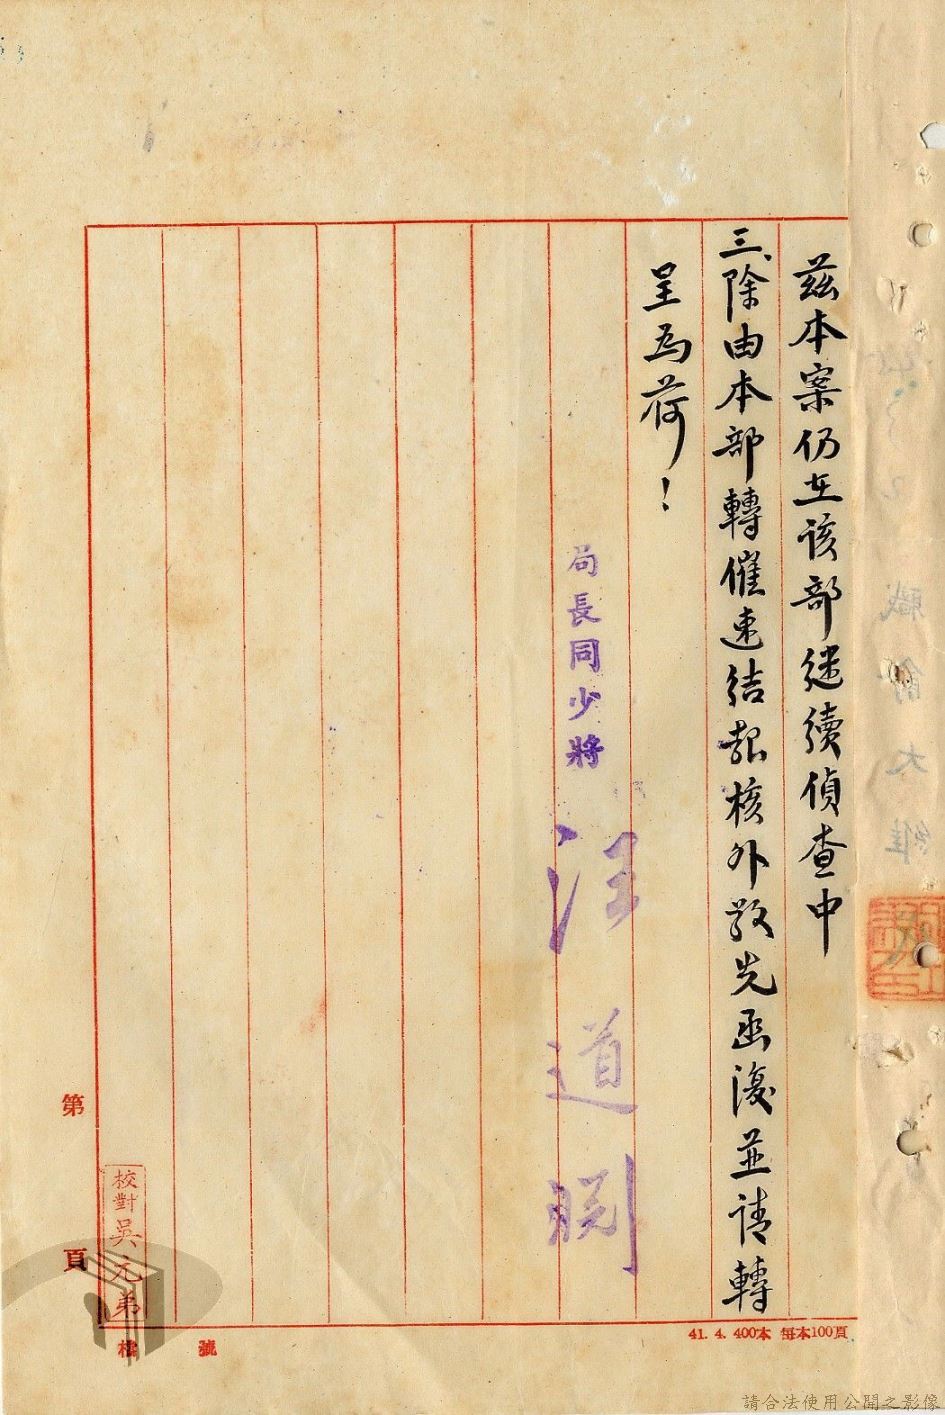 茲本案仍在該部继續偵查中
三、除由本部轉催速結報核外敬先函復並请轉
呈為荷！
局長同少將
汪道渊
校對吳元弟
第 頁
檔 號
41. 4. 400本 每本100頁
請合法使用公開之影像